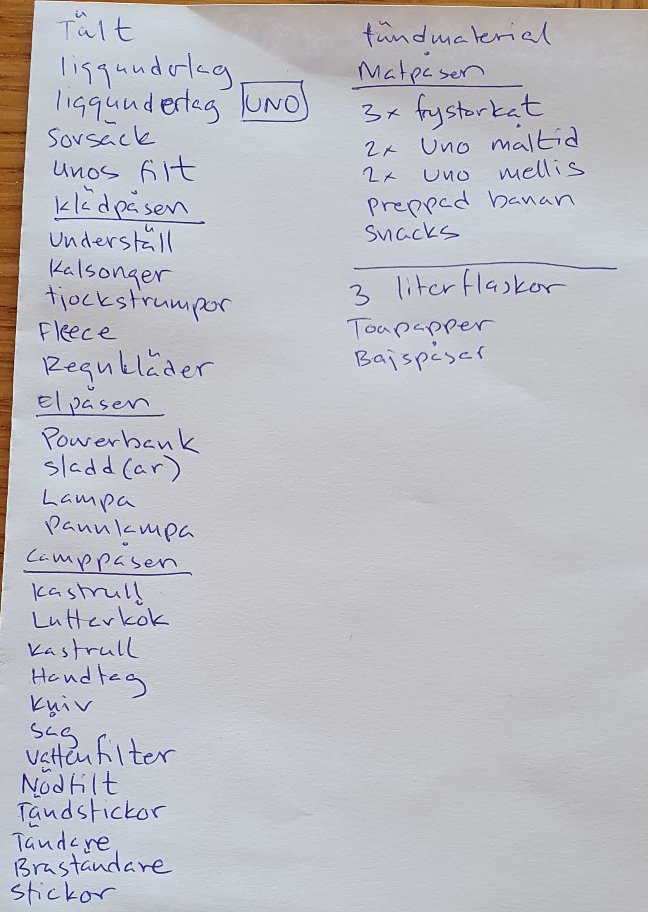 Tält
liggunderlag
liggunderlag UNO
Sovsäck
Unos filt
Klädpåsen
Underställ
Kalsonger
tjockstrumpor
Fleece
Regnkläder
Elpåsen
Powerbank
Sladd(ar)
Lampa
Pannlampa
Camppåsen
Kastrull
Lufferkök
Kastrull
Handtag
Kniv
Såg
Vattenfilter
Nödfilt
Tändstickor
Tändare
Braständare
Stickor
tändmaterial
Matpåsen
3x frystorkat
2x Uno måltid
2x Uno mellis
Preppad banan
Snacks
3 literflaskor
Toapapper
Bajspåsar